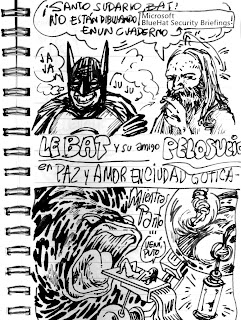 ¡SANTO SUDARIO, BAT!
NO ESTÁN DIBUJANDO
EN UN CUADERNO
Microsoft
BlueHat Security Briefings
JA
JA
JU JU
LE BAT y su amigo PELOSUCIO
en PAZ y AMOR EN CIUDAD GOTICA-
Mientra
Tanto
...
VENÍ
PUTO